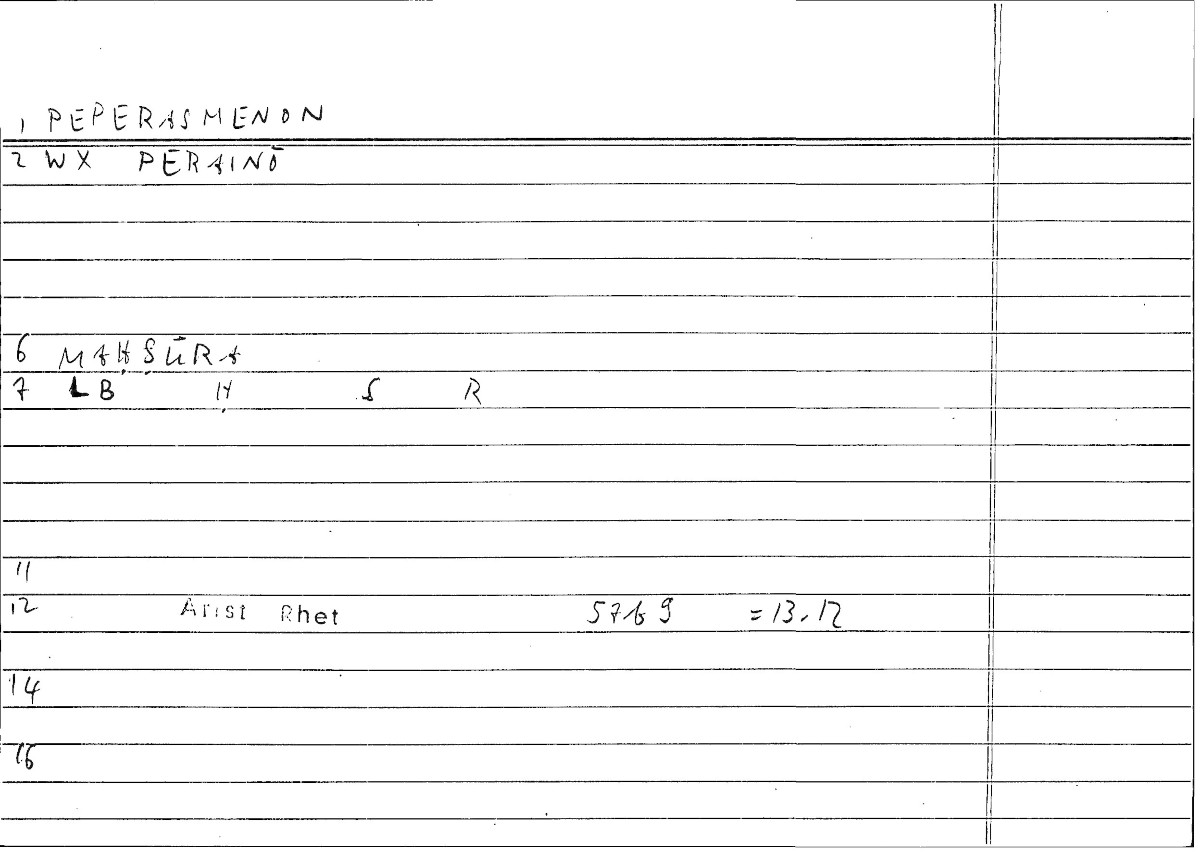 1 PEPERASMENON
2 WX PERAINŌ
6 MAḤṢŪRA
7 LB Ḥ Ṣ R
11
12 Arist Rhet 57b9 =13,12
14
16